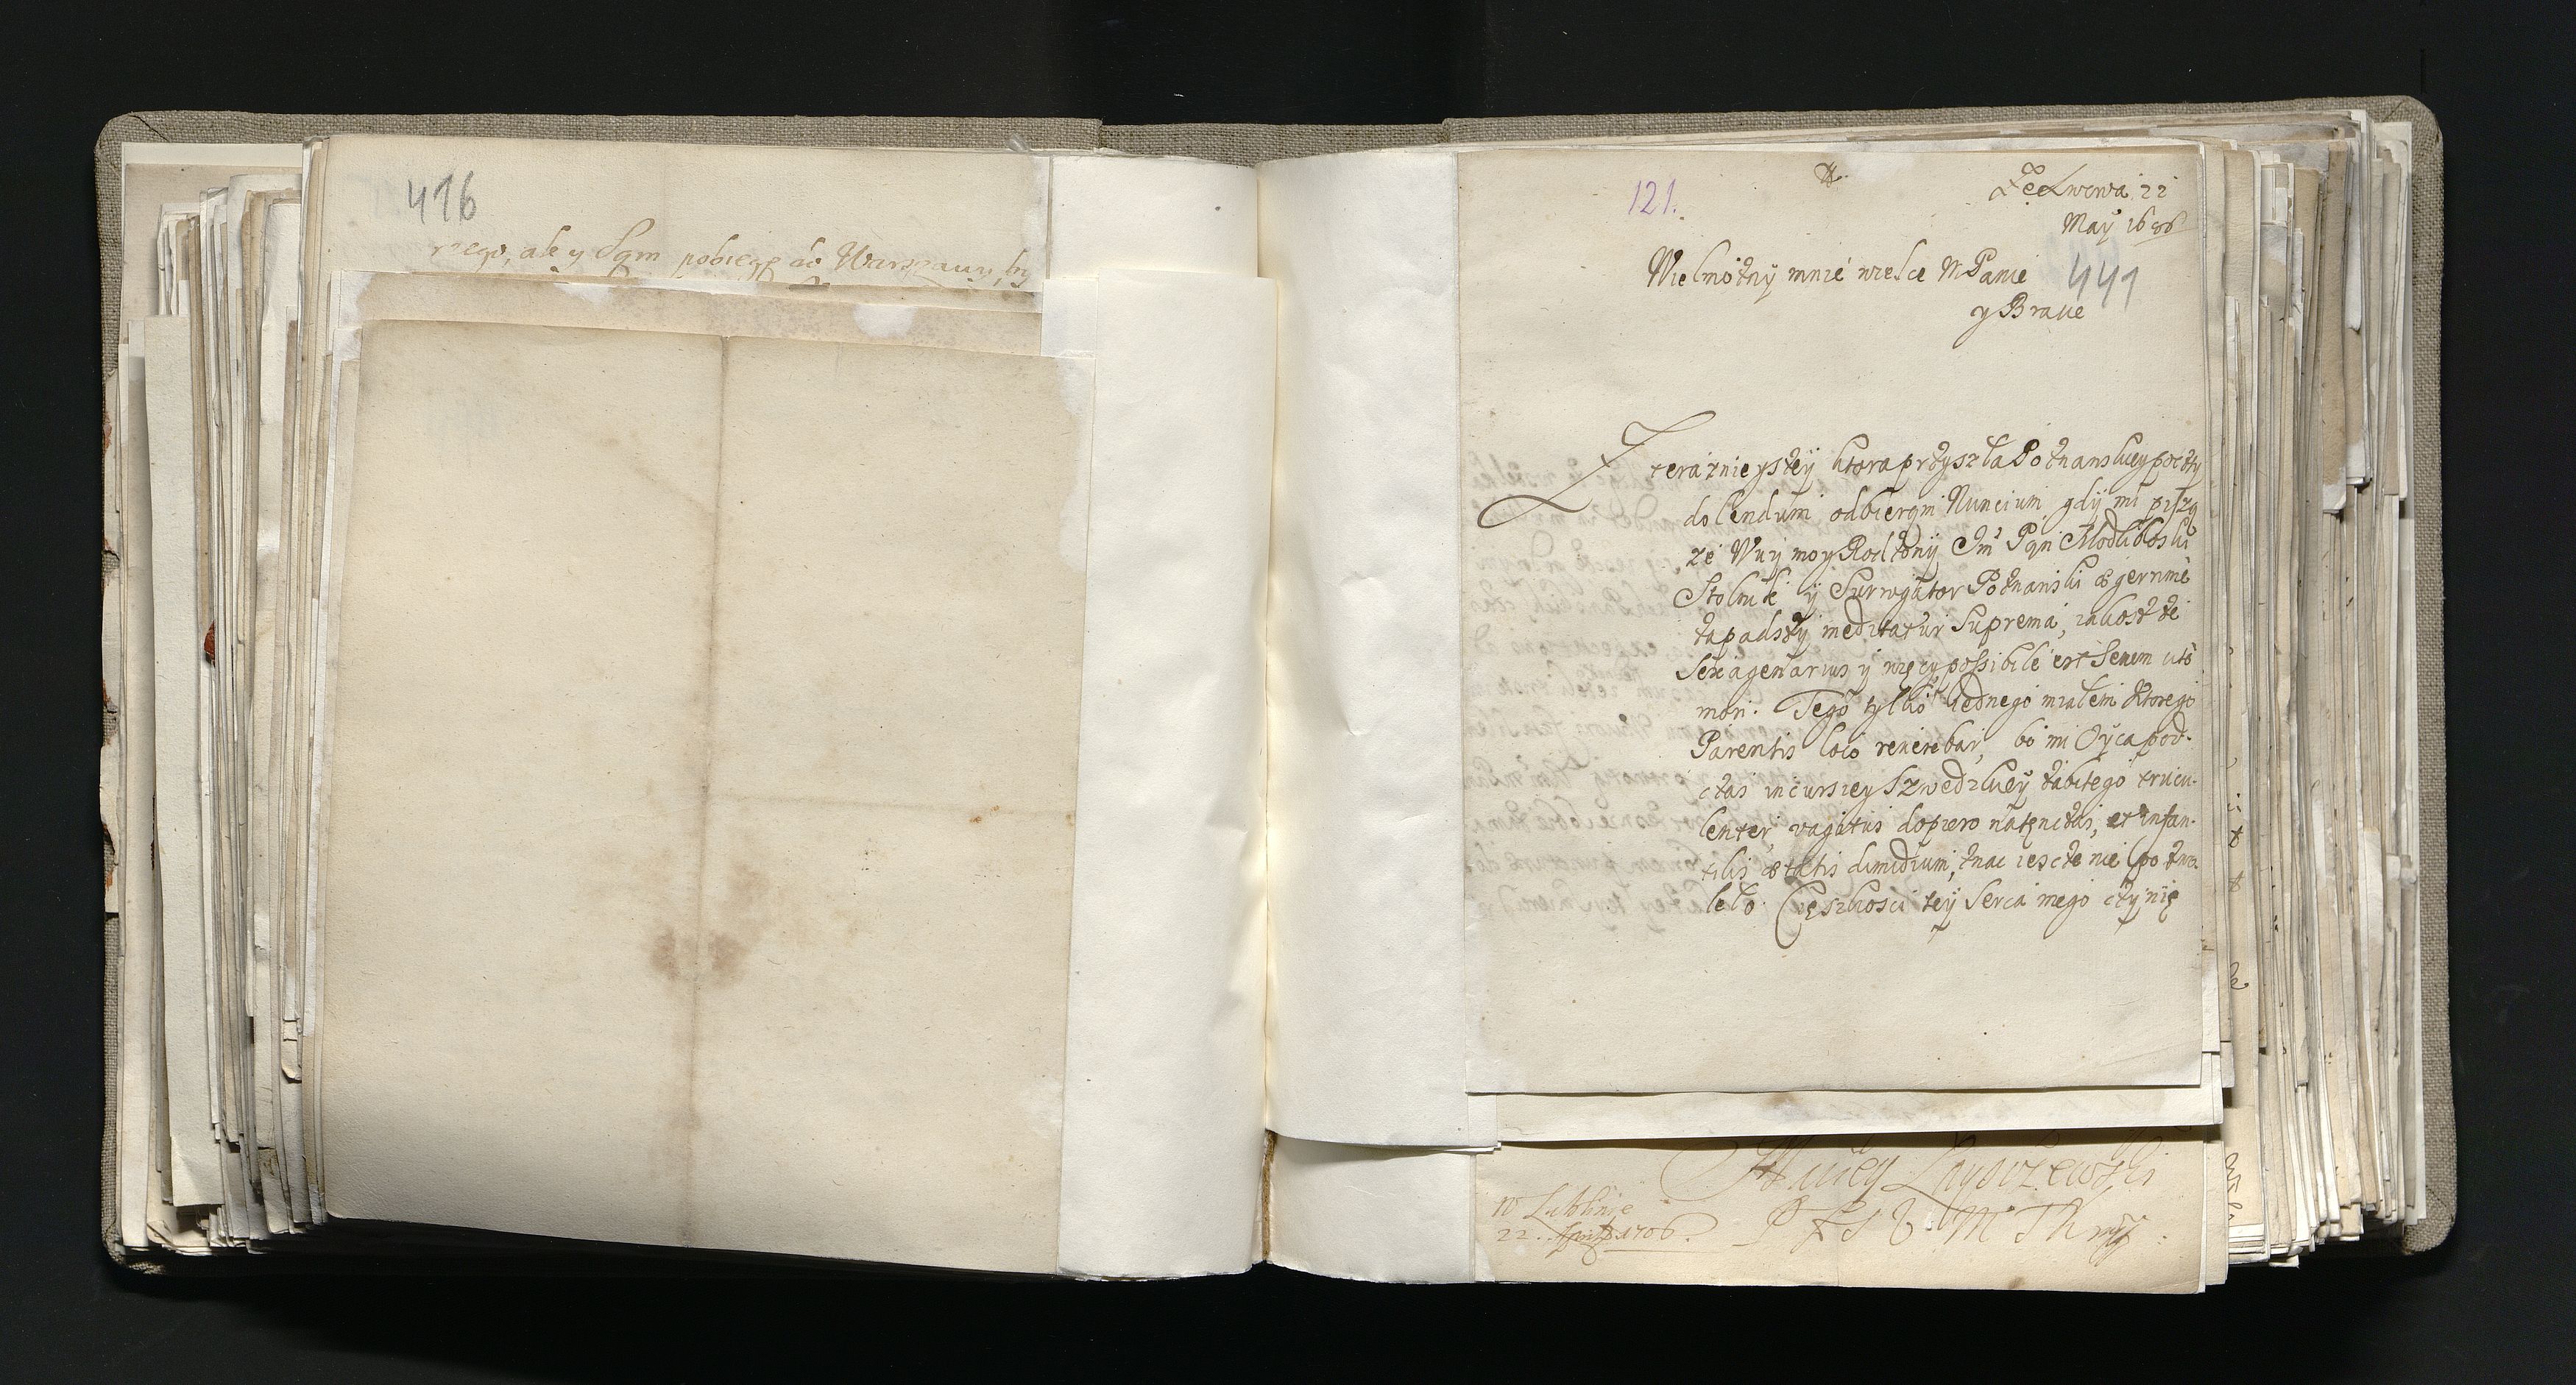 416
rzego, ale y Sąm pobiegę do Warszawy, by
121.
Ze Lwowa 22
May 1686
441
Wielmożny mnie wielce M Panie
y Bracie
Z teraznieyszey ktora przyszła Poznanskiey poczty
dolendum odbierąm Nuncium, gdy mi piszą
ze Wuy moy Rodzony Jm Pąn Modliboski
Stolnik y Surrogator Poznanski ægerrime
zapadszy meditatur Suprema, iakosz że
Sexagenarius y więcy possibile est Senem cito
mori. Tego tylko iednego miałem ktorego
Parentis loco reverebar, bo mi Oyca pod-
czas incursiey Szwedzkiey zabitego trucu-
lenter, vagitus dopiero natęnczas, et infan-
tilis ætatis dimidium, znac ieszcze nie pozwa
lało. Cięszkosci tey Serca mego czynię
w Lublinie
22. Aprila 1706.